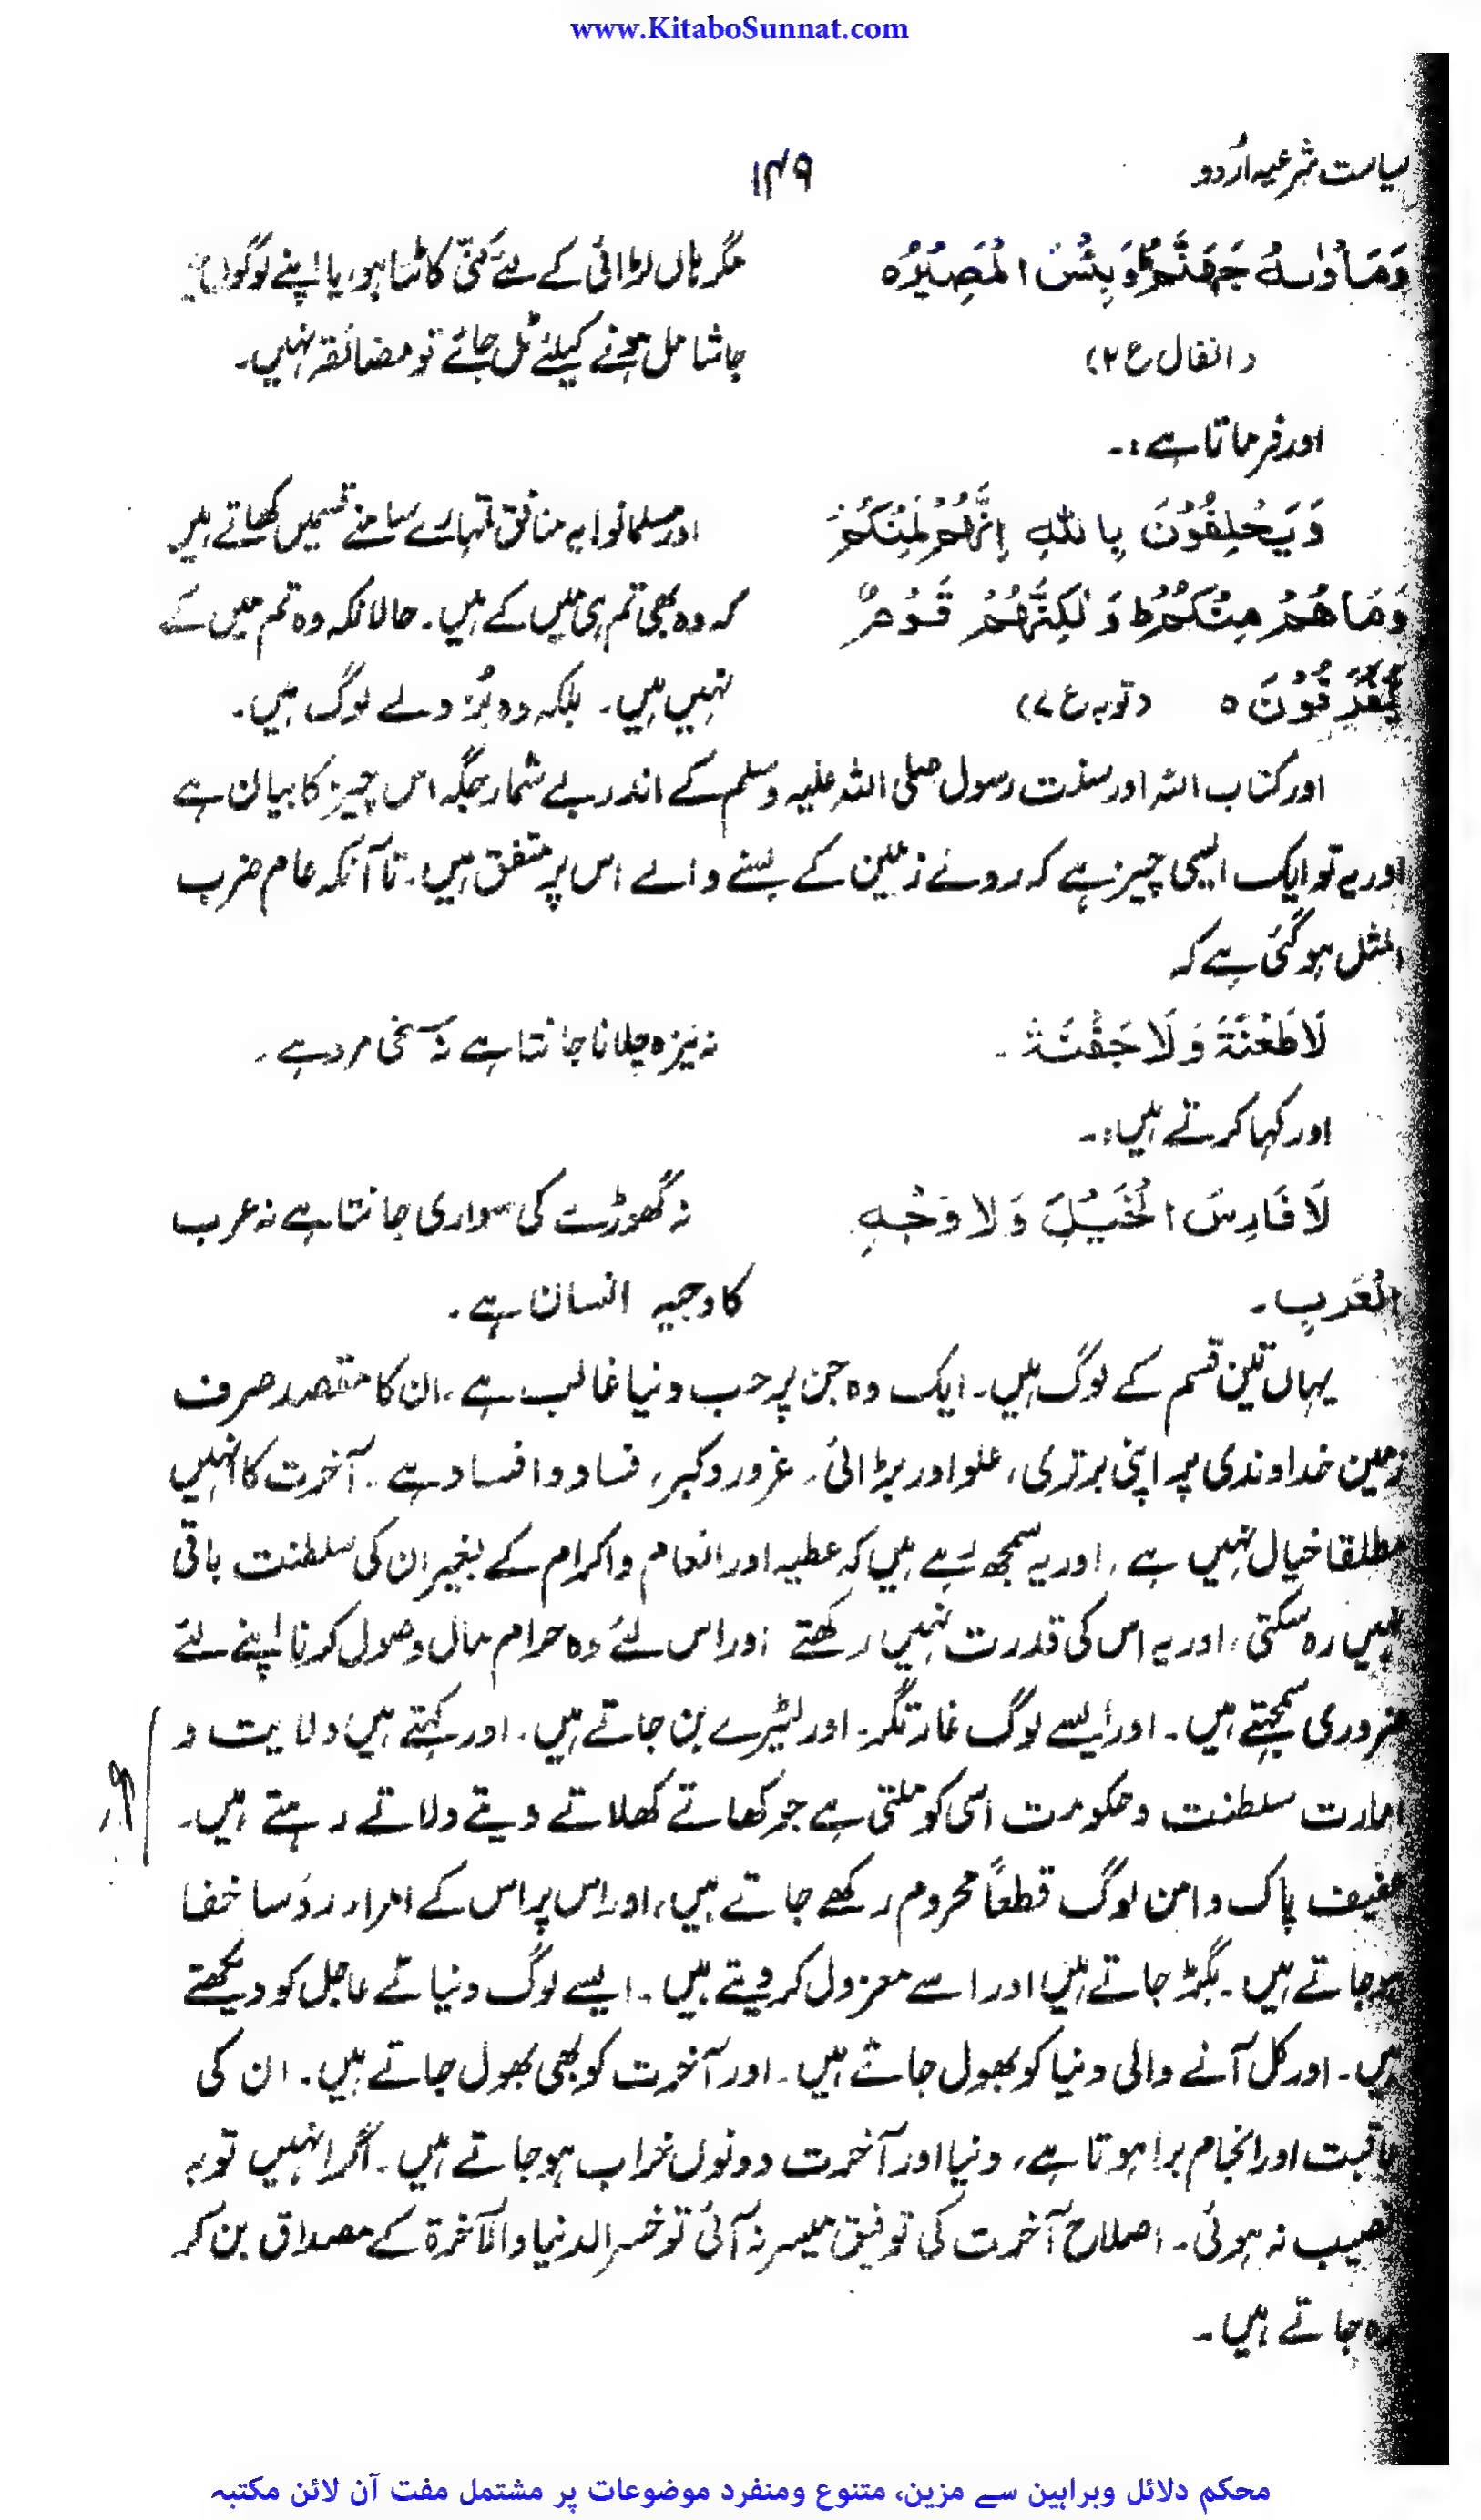 www.KitaboSunnat.com
سیاست شرعیہ اُردو ۱۴۹
وَمَاْوٰىهُ جَهَنَّمُ وَبِئْسَ الْمَصِيْرُ ہ مگر ہاں لڑائی کے لئے کنّی کاٹتا ہو، یا اپنے لوگوں میں
(انفال ع ۲) جا شامل ہونے کیلئے ٹل جائے تو مضائقہ نہیں۔
اور فرماتا ہے:۔
وَيَحْلِفُوْنَ بِاللّٰهِ اِنَّهُمْ لَمِنْكُمْ اور مسلمانو! یہ منافق تمہارے سامنے قسمیں کھاتے ہیں
وَمَا هُمْ مِنْكُمْ ط وَلٰكِنَّهُمْ قَوْمٌ کہ وہ بھی تم ہی میں کے ہیں۔ حالانکہ وہ تم میں کے
يَّفْرَقُوْنَ ہ (توبہ ع ۷) نہیں ہیں۔ بلکہ وہ بُزدلے لوگ ہیں۔
اور کتاب اللہ اور سنت رسول صلی اللہ علیہ وسلم کے اندر بے شمار جگہ اس چیز کا بیان ہے
اور یہ تو ایک ایسی چیز ہے کہ روئے زمین کے بسنے والے اس پر متفق ہیں۔ تا آنکہ عام ضرب
المثل ہو گئی ہے کہ
لَا طَعْنَةَ وَلَا جَفْنَةَ ۔ نہ نیزہ چلانا جانتا ہے نہ سخی مرد ہے۔
اور کہا کرتے ہیں:۔
لَا فَارِسَ الْخَيْلِ وَلَا وَجْهِ نہ گھوڑے کی سواری جانتا ہے نہ عرب
الْعَرَبِ۔ کا وجیہ انسان ہے۔
یہاں تین قسم کے لوگ ہیں۔ ایک وہ جن پر حب دنیا غالب ہے، ان کا مقصد صرف
زمین خداوندی پر اپنی برتری، علو اور بڑائی، غرور و کبر، فساد و افساد ہے۔ آخرت کا انہیں
مطلقا خیال نہیں ہے، اور یہ سمجھ رہے ہیں کہ عطیہ اور انعام و اکرام کے بغیر ان کی سلطنت باقی
نہیں رہ سکتی، اور یہ اس کی قدرت نہیں رکھتے اور اس لئے وہ حرام مال وصول کرنا اپنے لئے
ضروری سمجھتے ہیں۔ اور ایسے لوگ غارتگر۔ اور لٹیرے بن جاتے ہیں، اور کہتے ہیں ولایت و
امارت سلطنت و حکومت اسی کو ملتی ہے جو کھاتے کھلاتے دیتے دلاتے رہتے ہیں۔
عفیف پاک دامن لوگ قطعاً محروم رکھے جاتے ہیں، اور اس پر اس کے امراء رؤسا خفا
ہو جاتے ہیں۔ بگڑ جاتے ہیں اور اسے معزول کر دیتے ہیں۔ ایسے لوگ دنیائے عاجل کو دیکھتے
ہیں۔ اور کل آنے والی دنیا کو بھول جاتے ہیں۔ اور آخرت کو بھی بھول جاتے ہیں۔ ان کی
عاقبت اور انجام برا ہوتا ہے، دنیا اور آخرت دونوں خراب ہو جاتے ہیں۔ اگر انہیں توبہ
نصیب نہ ہوئی۔ اصلاح آخرت کی توفیق میسر نہ آئی تو خسر الدنیا والآخرۃ کے مصداق بن کر
رہ جاتے ہیں۔
محکم دلائل وبراہین سے مزین، متنوع ومنفرد موضوعات پر مشتمل مفت آن لائن مکتبہ